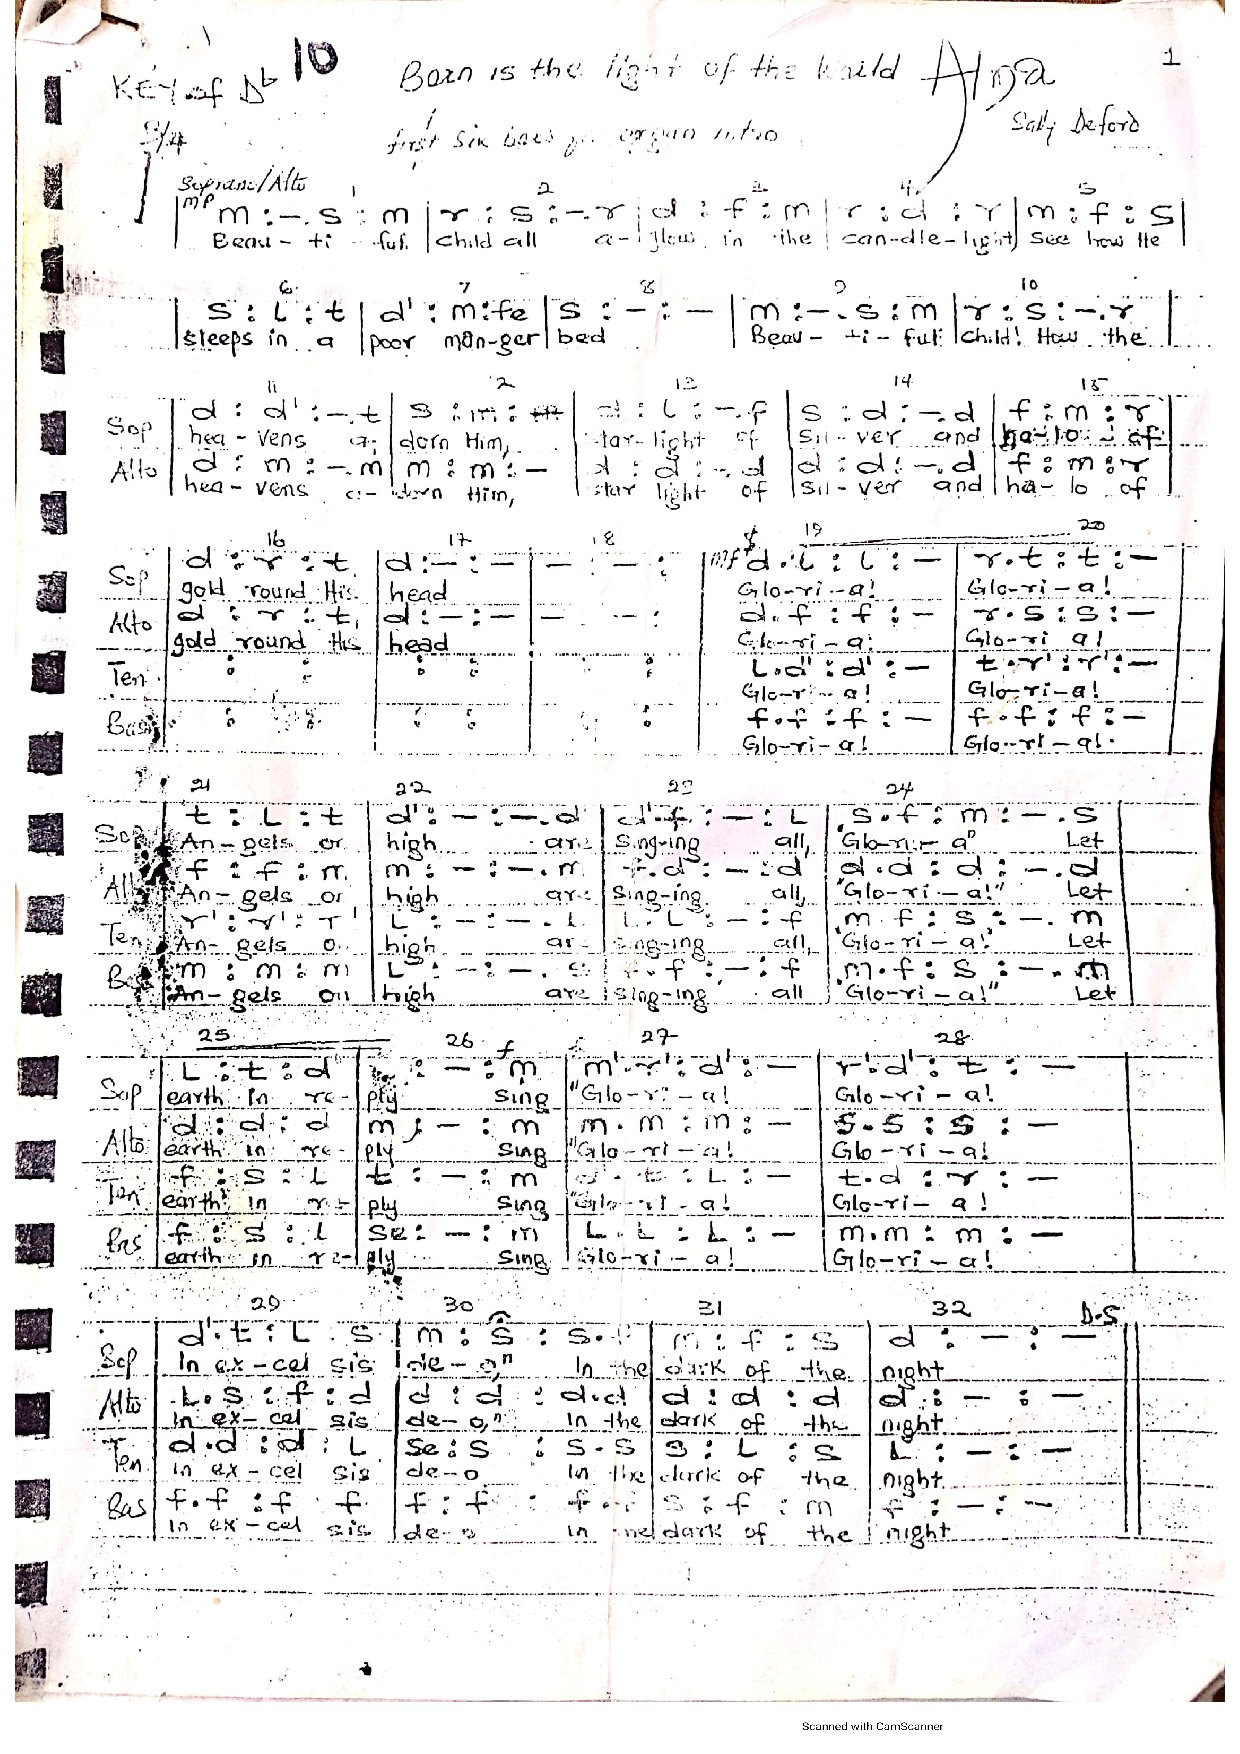 1
KEY of Db 10 Born is the light of the World
3/4 first six bars for organ intro Sally Deford
Soprano/Alto 1 2 3 4 5
mp m :-. s : m | r : s :-. r | d : f : m | r : d : r | m : f : s |
Beau - ti - ful child all a - glow in the can-dle-light see how He
6 7 8 9 10
| s : L : t | d' : m : fe | s : - : - | m :-. s : m | r : s :-. r |
sleeps in a poor man-ger bed Beau - ti - ful child! How the
11 12 13 14 15
Sop | d : d' :-. t | s : m : | d : L :-. f | s : d :-. d | f : m : r
hea - vens a- dorn Him, star-light of sil - ver and ha-lo of
Alto d : m :-. m | m : m : - | d : d :-. d | d : d :-. d | f : m : r
hea - vens a- dorn Him, star light of sil - ver and ha - lo of
16 17 18 19 20
Sop d : r : t, | d : - : - | - : - : | mf d . L : L : - | r . t : t : -
gold round His head Glo-ri-a! Glo-ri-a!
Alto d : r : t, | d : - : - | - : | d . f : f : - | r . s : s : -
gold round His head Glo-ri-a! Glo-ri a!
Ten : : : : : L . d' : d' : - | t . r' : r' : -
Glo-ri-a! Glo-ri-a!
Bas : : : : : f . f : f : - | f . f : f : -
Glo-ri-a! Glo-ri-a!
21 22 23 24
Sop t : L : t | d' : - : -. d | d' . f : - : L | s . f : m : - . s
An-gels on high are Sing-ing all, "Glo-ri-a" Let
Alt f : f : m | m : - : - . m | f . d : - : d | d . d : d : - . d
An-gels on high are Sing-ing all, "Glo-ri-a!" Let
Ten r' : r' : r' | L : - : - . L | L . L : - : f | m . f : s : - . m
An-gels high Sing-ing all, "Glo-ri-a!" Let
Bas m : m : m | L : - : - . s | f . f : - : f | m . f : s : - . m
An-gels on high are Sing-ing all "Glo-ri-a!" Let
25 26 f 27 28
Sop L : t : d | : - : m | m' . r' : d' : - | r' . d' : t : -
earth in re-ply Sing "Glo-ri-a! Glo-ri-a!
Alto d : d : d | m : - : m | m . m : m : - | s . s : s : -
earth in re-ply Sing "Glo-ri-a! Glo-ri-a!
Ten f : s : L | t : - : m | t : L : - | t . d : r : -
earth in re-ply Sing "Glo-ri-a! Glo-ri-a!
Bas f : s : L | se : - : m | L . L : L : - | m . m : m : -
earth in re-ply Sing Glo-ri-a! Glo-ri-a!
29 30 31 32 D.S
Sop d' . t : L . s | m : s : s . | m : f : s | d : - : -
In ex-cel sis de-o," In the dark of the night
Alto L . s : f : d | d : d : d . d | d : d : d | d : - : -
in ex-cel sis de-o," in the dark of the night
Ten d . d : d : L | se : s : s . s | s : L : s | L : - : -
in ex-cel sis de-o In the dark of the night
Bas f . f : f f | f : f : f . | s : f : m | f : - : -
in ex-cel sis de-o in dark of the night
Scanned with CamScanner